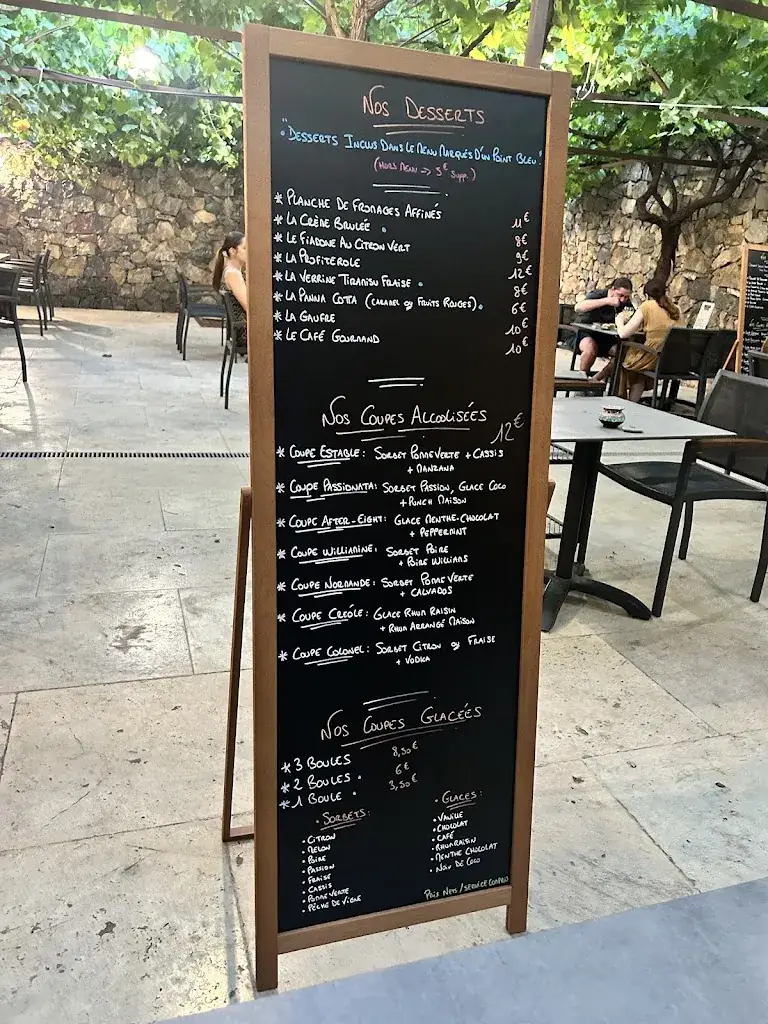 Nos Desserts
"Desserts Inclus Dans Le Menu Marqués D'un Point Bleu."
(Hors Menu => 5€ Supp.)
* Planche De Fromages Affinés 11€
* La Crème Brulée • 8€
* Le Fiadone Au Citron Vert 9€
* La Profiterole 12€
* La Verrine Tiramisu Fraise • 8€
* La Panna Cotta (Caramel ou Fruits Rouges) • 6€
* La Gaufre 10€
* Le Café Gourmand 10€
Nos Coupes Alcoolisées 12€
* Coupe Estable : Sorbet Pomme Verte + Cassis
+ Manzana
* Coupe Passionata : Sorbet Passion, Glace Coco
+ Punch Maison
* Coupe After-Eight : Glace Menthe-Chocolat
+ Peppermint
* Coupe Williamine : Sorbet Poire
+ Poire Williams
* Coupe Normande : Sorbet Pomme Verte
+ Calvados
* Coupe Créole : Glace Rhum Raisin
+ Rhum Arrangé Maison
* Coupe Colonel : Sorbet Citron ou Fraise
+ Vodka
Nos Coupes Glacées
* 3 Boules 8,50€
* 2 Boules • 6€
* 1 Boule • 3,50€
• Sorbets :
• Citron
• Melon
• Poire
• Passion
• Fraise
• Cassis
• Pomme Verte
• Pêche De Vigne
• Glaces :
• Vanille
• Chocolat
• Café
• Rhum Raisin
• Menthe Chocolat
• Noix De Coco
Prix Nets / Service Compris